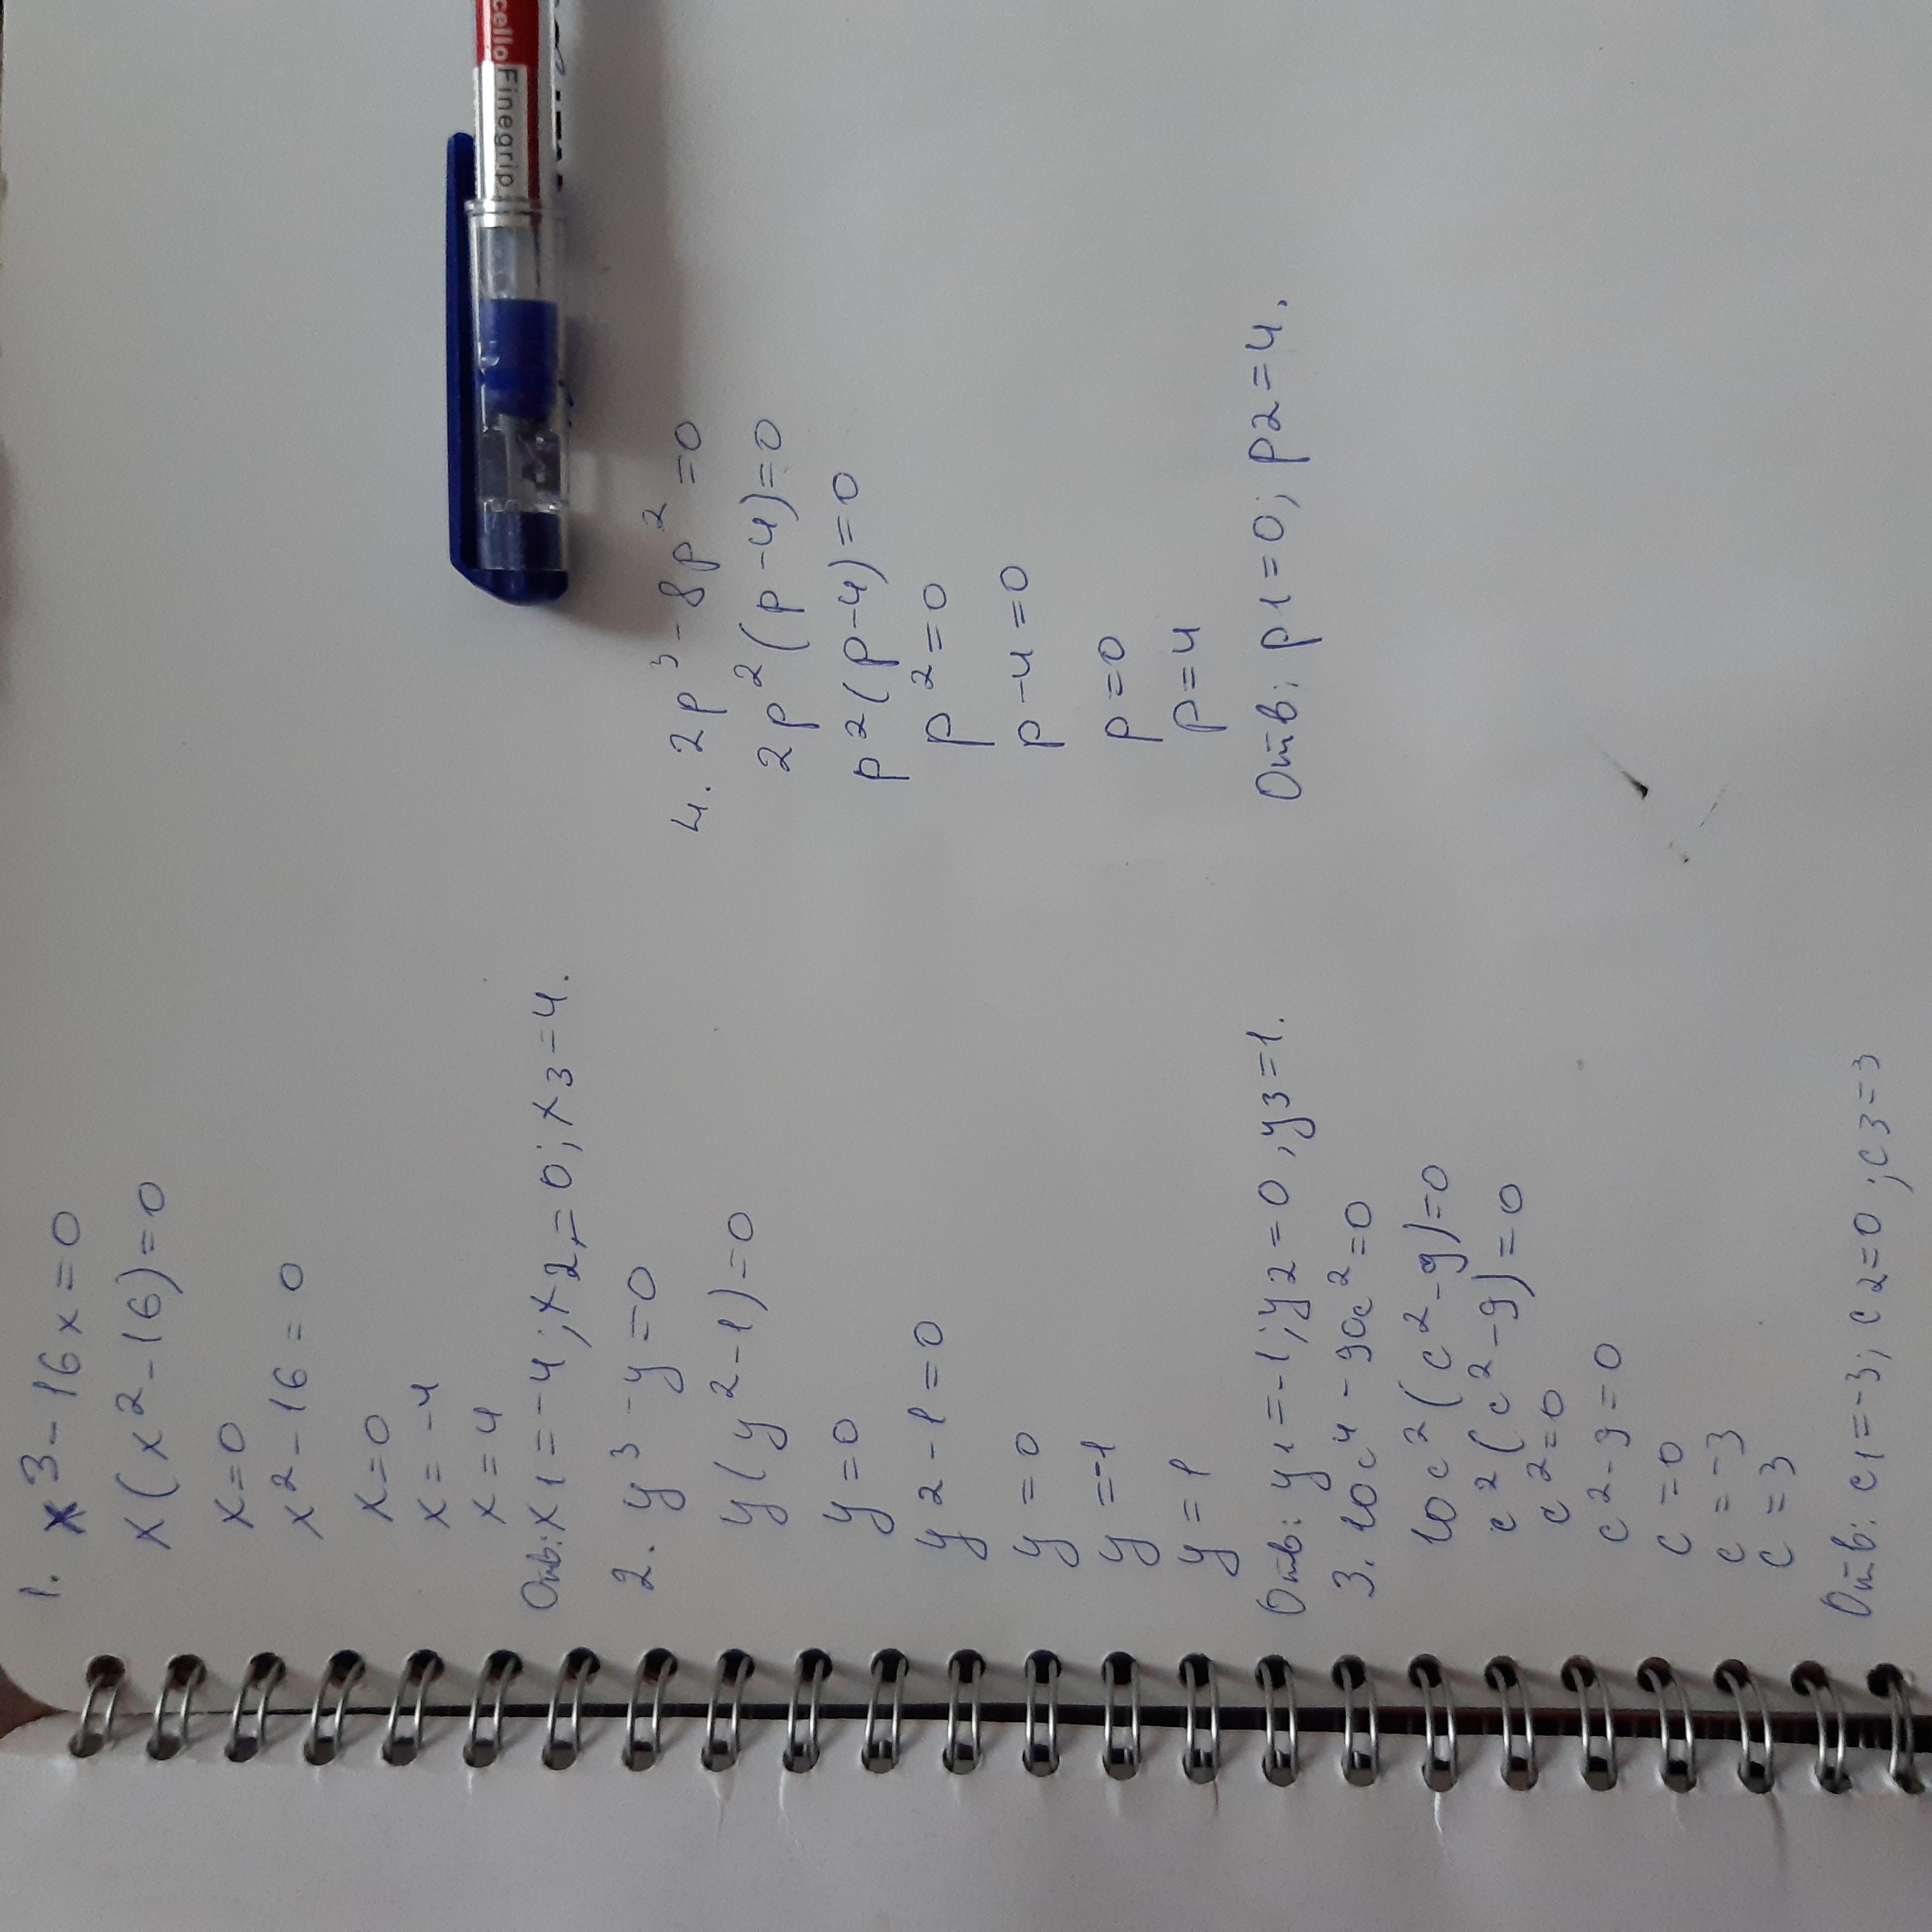 1. x3-16x=0
x(x2-16)=0
x=0
x2-16=0
x=0
x=-4
x=4
Отв:x1=-4;x2=0;x3=4.
2. y3-y=0
y(y2-1)=0
y=0
y2-1=0
y=0
y=-1
y=1
Отв: y1=-1;y2=0,y3=1.
3. 10c4-90c2=0
10c2(c2-9)=0
c2(c2-9)=0
c2=0
c2-9=0
c=0
c=-3
c=3
Отв: c1=-3; c2=0;c3=3
4. 2p3-8p2=0
2p2(p-4)=0
p2(p-4)=0
p2=0
p-4=0
p=0
p=4
Отв: p1=0; p2=4.
cello Finegrip